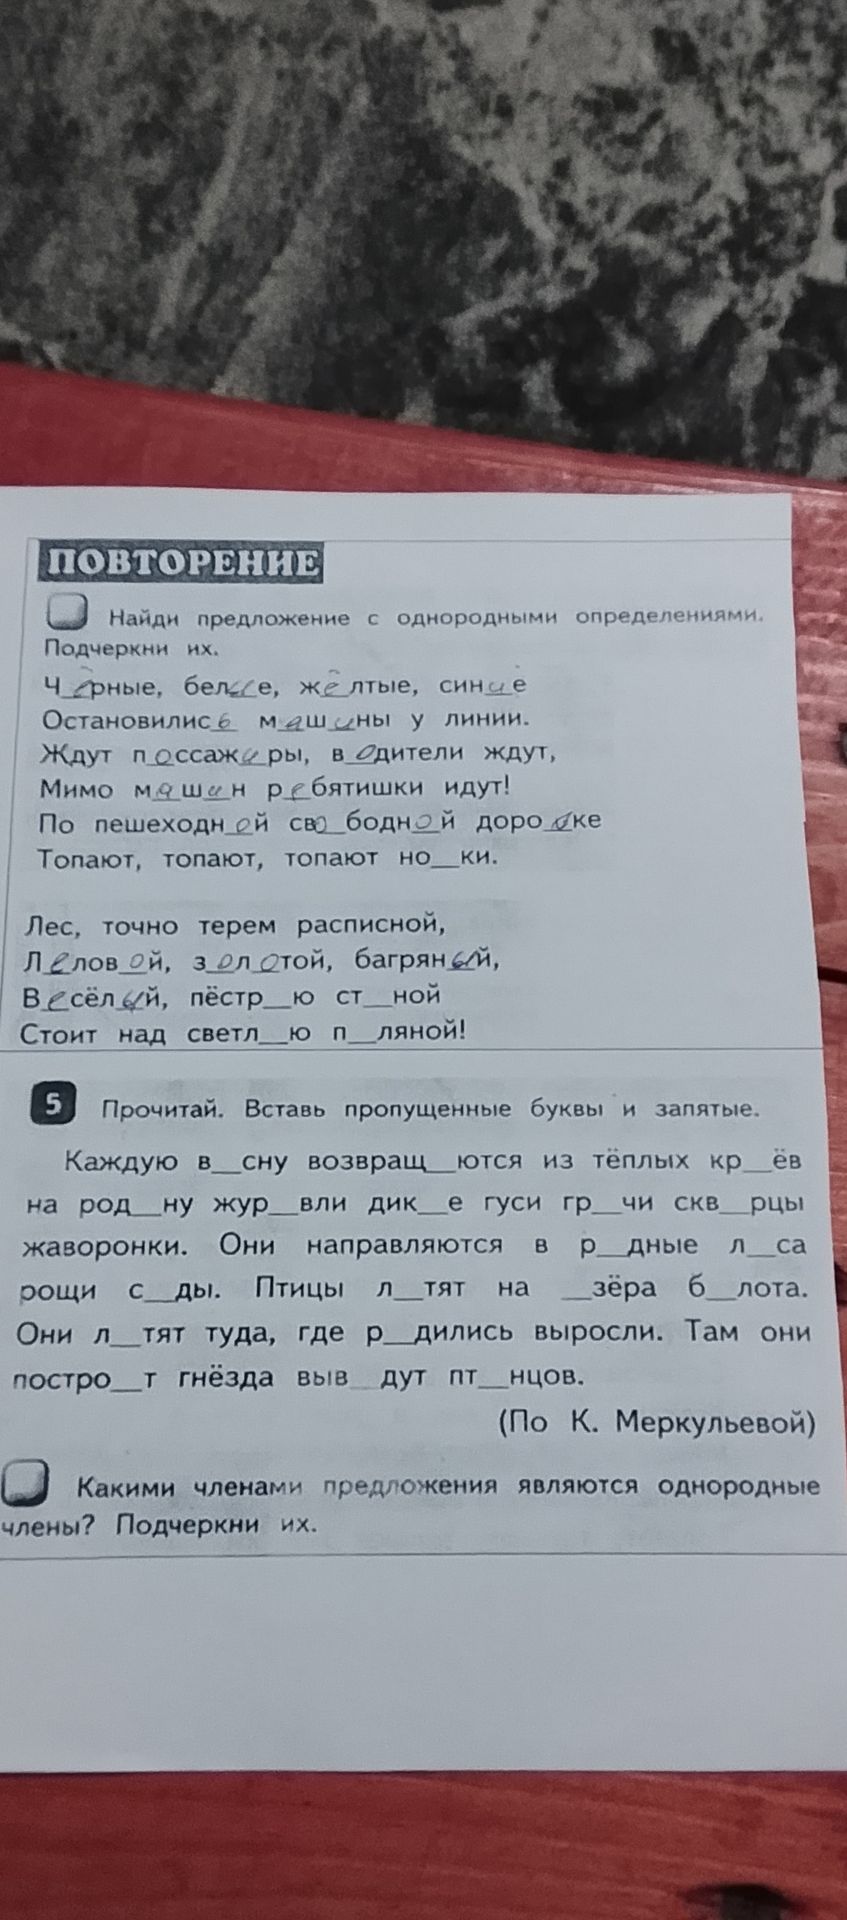 ПОВТОРЕНИЕ
Найди предложение с однородными определениями.
Подчеркни их.
Чёрные, белые, жёлтые, синие
Остановились машины у линии.
Ждут поссажиры, водители ждут,
Мимо машин ребятишки идут!
По пешеходней свободной
Топают, топают, топают но__ки.
Лес, точно терем расписной,
Леловой, золотой, багряный,
Весёлый, пёстр__ю ст__ной
Стоит над светл__ю п__ляной!
5 Прочитай. Вставь пропущенные буквы и запятые.
Каждую в__сну возвращ__ются из тёплых кр__ёв
на род__ну жур__вли дик__е гуси гр__чи скв__рцы
жаворонки. Они направляются в р__дные л__са
рощи с__ды. Птицы л__тят на __зёра б__лота.
Они л__тят туда, где р__дились выросли. Там они
постро__т гнёзда выв__дут пт__нцов.
(По К. Меркульевой)
Какими членами предложения являются однородные
члены? Подчеркни их.